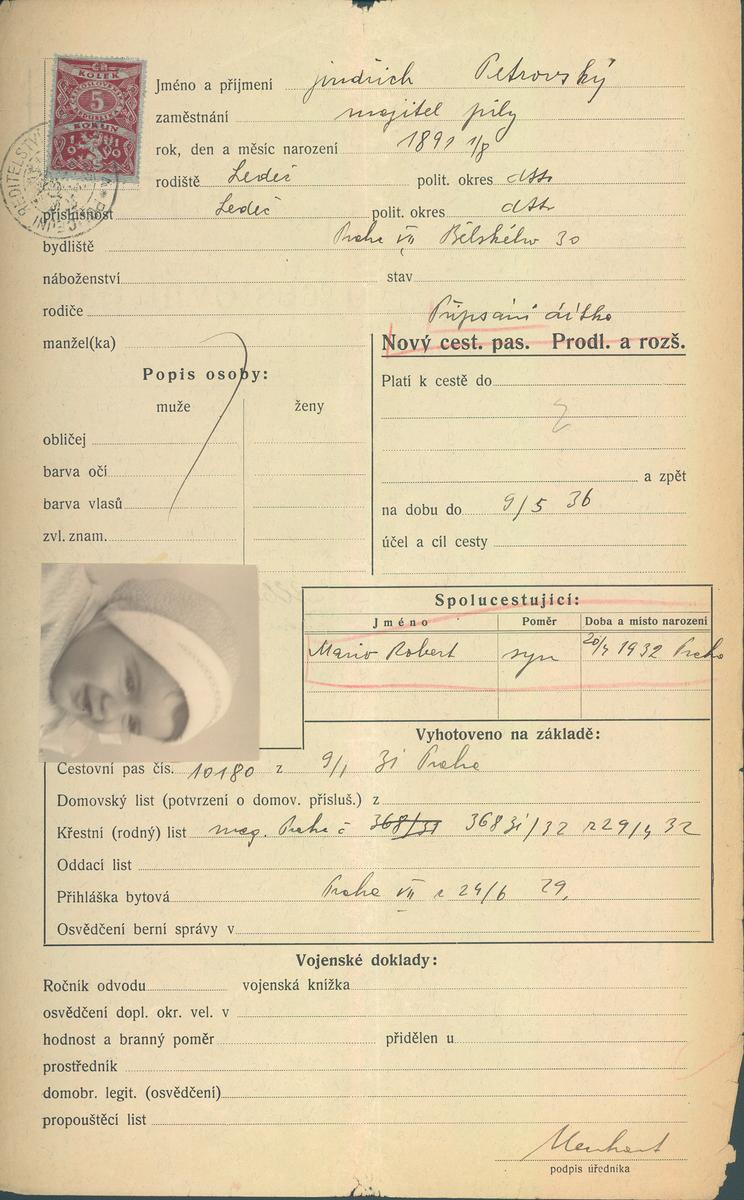 KOLEK
5
KORUN
Jméno a příjmení Jindřich Petrovský
zaměstnání majitel pily
rok, den a měsíc narození 1891 1/8
rodiště Ledeč polit. okres dtto
příslušnost Ledeč polit. okres dtto
bydliště Praha VII Bělského 30
náboženství stav
rodiče
Připsání dítka
manžel(ka)
Nový cest. pas. Prodl. a rozš.
Popis osoby:
muže ženy
obličej
barva očí
barva vlasů
zvl. znam.
Platí k cestě do
a zpět
na dobu do 9/5 36
účel a cíl cesty
Spolucestující:
Jméno Poměr Doba a místo narození
Mario Robert syn 20/4 1932 Praha
Vyhotoveno na základě:
Cestovní pas čís. 10180 z 9/1 31 Praha
Domovský list (potvrzení o domov. přísluš.) z
Křestní (rodný) list mag. Praha č 368/31 36831/32 z 29/4 32
Oddací list
Přihláška bytová Praha VII z 24/6 29.
Osvědčení berní správy v
Vojenské doklady:
Ročník odvodu vojenská knížka
osvědčení dopl. okr. vel. v
hodnost a branný poměr přidělen u
prostředník
domobr. legit. (osvědčení)
propouštěcí list
podpis úředníka